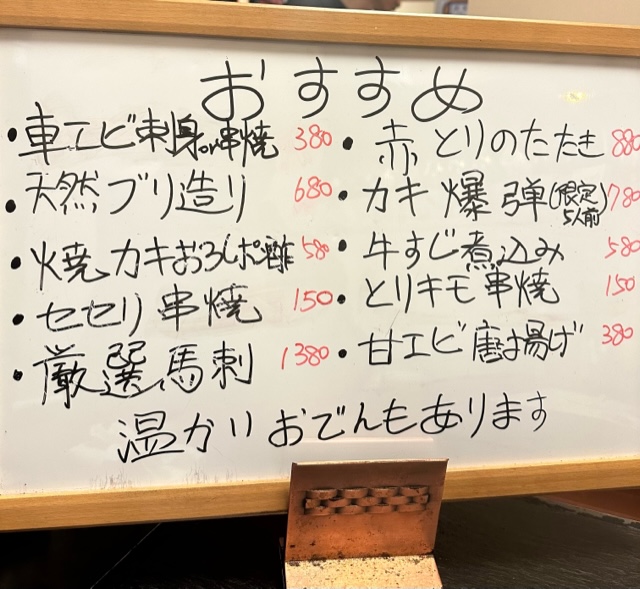 おすすめ
・車エビ刺身or串焼 380
・天然ブリ造り 680
・焼カキおろしポン酢 580
・セセリ串焼 150
・厳選馬刺 1380
・赤とりのたたき 880
・カキ爆弾(限定5人前) 780
・牛すじ煮込み 580
・とりキモ串焼 150
・甘エビ唐揚げ 380
温かいおでんもあります